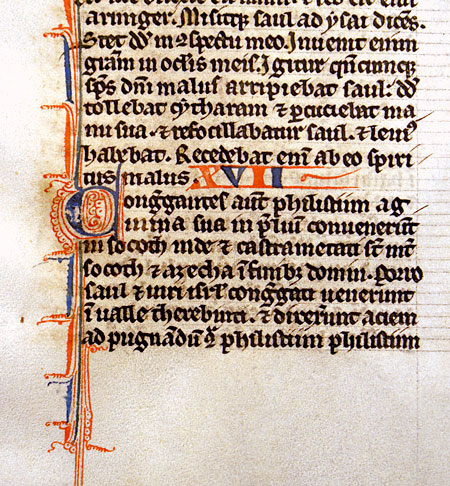 armiger. Misitq; saul ad ysai dices.
Stet dd in ɔspectu meo. Inuenit enim
gram in oclis meis. Igitur qn̄cumq;
sps dn̄i malus arripiebat saul: dd
tollebat cytharam & percuciebat ma
nu sua. & refocillabatur saul. & leuiꝰ
habebat. Recedebat eni ab eo spiri
tus malus XVII
Congregantes aut philistiim ag
mina sua in preliū conuenerunt
in socoth iude & castrametati st int
socoth & azecha in finibꝫ domim. Porro
saul & uiri isrl congregati uenerunt
ī ualle therebinti. & direxerunt aciem
ad pugnādū ꝯ philistiim philistiim